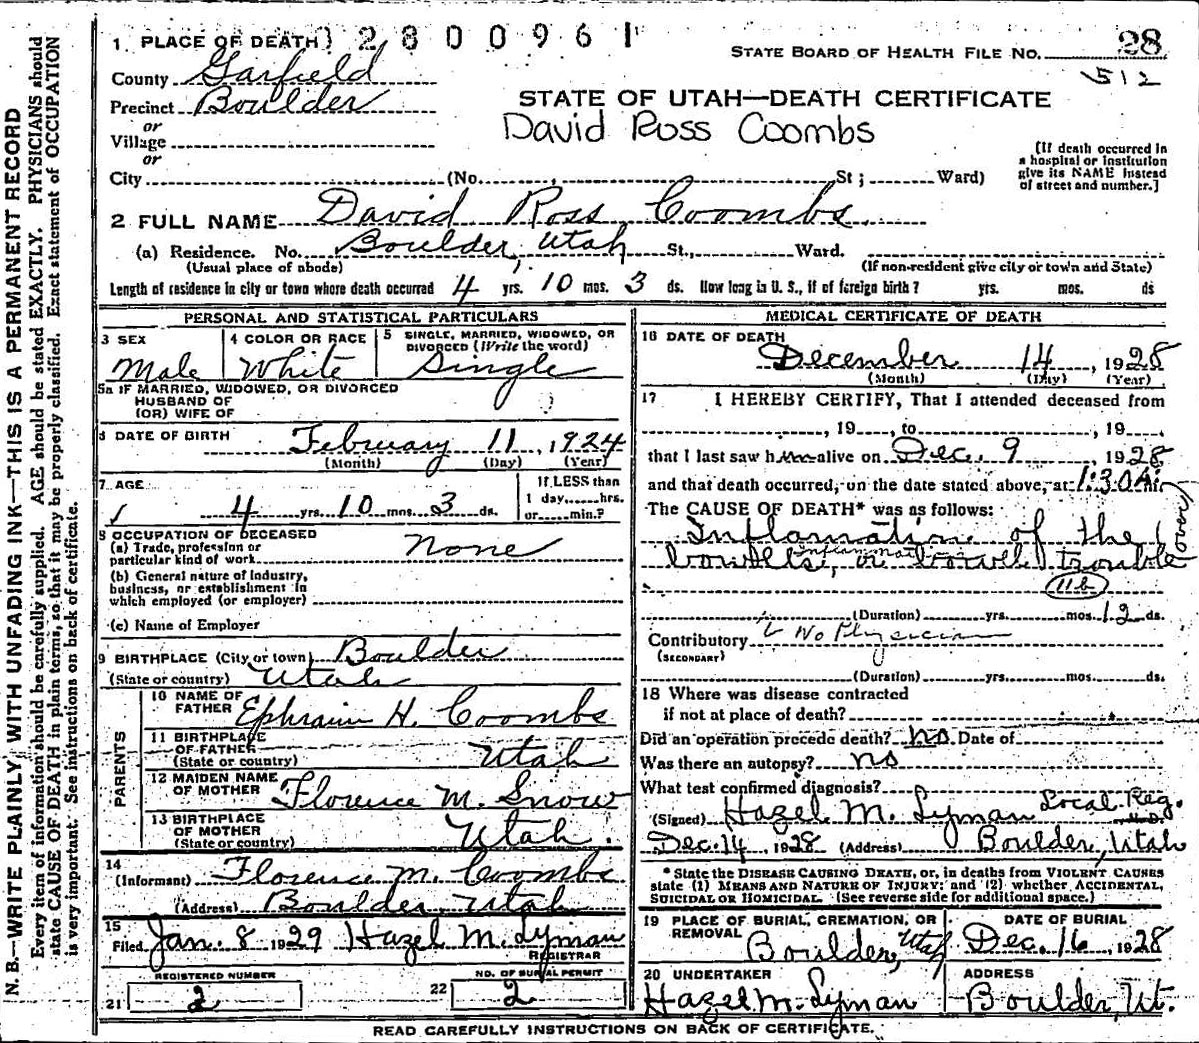 N. B.—WRITE PLAINLY, WITH UNFADING INK—THIS IS A PERMANENT RECORD
Every item of information should be carefully supplied. AGE should be stated EXACTLY. PHYSICIANS should
state CAUSE OF DEATH in plain terms, so that it may be properly classified. Exact statement of OCCUPATION
is very important. See instructions on back of certificate.
2800961
1 PLACE OF DEATH
STATE BOARD OF HEALTH FILE NO. 28
512
County Garfield
Precinct Boulder
or
Village
or
STATE OF UTAH—DEATH CERTIFICATE
David Ross Coombs
(If death occurred in
a hospital or institution
give its NAME instead
of street and number.]
City (No. St; Ward)
2 FULL NAME David Ross Coombs
(a) Residence. No. Boulder, Utah St., Ward.
(Usual place of abode) (If non-resident give city or town and State)
Length of residence in city or town where death occurred 4 yrs. 10 mos. 3 ds. How long in U. S., if of foreign birth? yrs. mos. ds
PERSONAL AND STATISTICAL PARTICULARS
3 SEX
Male
4 COLOR OR RACE
White
5 SINGLE, MARRIED, WIDOWED, OR
DIVORCED (Write the word)
Single
5a IF MARRIED, WIDOWED, OR DIVORCED
HUSBAND OF
(OR) WIFE OF
6 DATE OF BIRTH February 11, 1924
(Month) (Day) (Year)
7 AGE
4 yrs. 10 mos. 3 ds.
If LESS than
1 day, hrs.
or min.?
8 OCCUPATION OF DECEASED
(a) Trade, profession or
particular kind of work None
(b) General nature of industry,
business, or establishment in
which employed (or employer)
(c) Name of Employer
9 BIRTHPLACE (City or town) Boulder
(State or country) Utah
PARENTS
10 NAME OF
FATHER Ephraim H. Coombs
11 BIRTHPLACE
OF FATHER
(State or country) Utah
12 MAIDEN NAME
OF MOTHER Florence M. Snow
13 BIRTHPLACE
OF MOTHER
(State or country) Utah.
14
(Informant) Florence M. Coombs
(Address) Boulder, Utah
15
Filed Jan. 8 1929 Hazel M. Lyman
REGISTRAR
REGISTERED NUMBER
21 2
NO. OF BURIAL PERMIT
22 2
MEDICAL CERTIFICATE OF DEATH
16 DATE OF DEATH
December 14, 1928
(Month) (Day) (Year)
17 I HEREBY CERTIFY, That I attended deceased from
, 19 , to , 19
that I last saw him alive on Dec. 9 1928
and that death occurred, on the date stated above, at 1:30 A.m.
The CAUSE OF DEATH* was as follows:
Inflamation of the (over)
bowells, or bowell trouble
11b
(Duration) yrs. mos. 12 ds.
Contributory No Physician
(SECONDARY)
(Duration) yrs. mos. ds.
18 Where was disease contracted
if not at place of death?
Did an operation precede death? no Date of
Was there an autopsy? no
What test confirmed diagnosis?
(Signed) Hazel M. Lyman Local Reg. M.D.
Dec. 14, 1928 (Address) Boulder, Utah
* State the DISEASE CAUSING DEATH, or, in deaths from VIOLENT CAUSES
state (1) MEANS AND NATURE OF INJURY; and (2) whether ACCIDENTAL,
SUICIDAL OR HOMICIDAL. (See reverse side for additional space.)
19 PLACE OF BURIAL, CREMATION, OR
REMOVAL
Boulder, Utah
DATE OF BURIAL
Dec. 16, 1928
20 UNDERTAKER
Hazel M. Lyman
ADDRESS
Boulder, Ut.
READ CAREFULLY INSTRUCTIONS ON BACK OF CERTIFICATE.